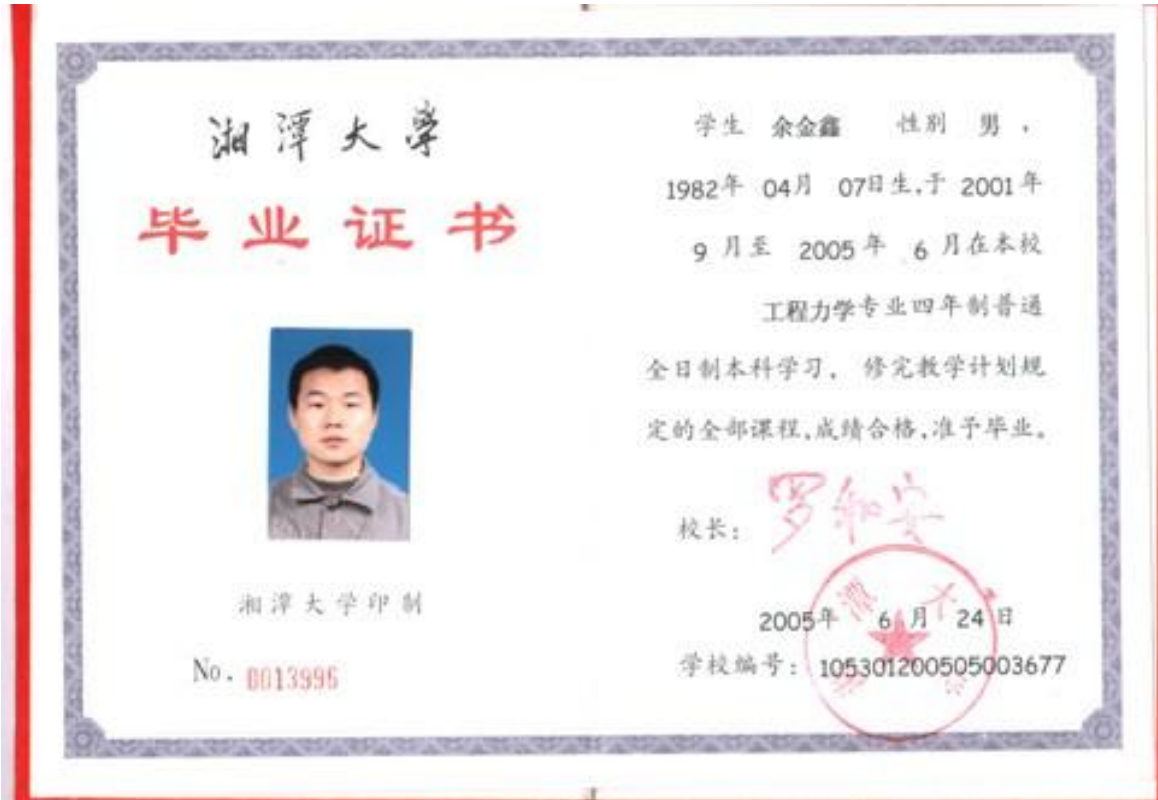 湘潭大学
毕业证书
湘潭大学印制
No. 0013996
学生 余金鑫 性别 男 ,
1982年 04月 07日生,于 2001年
9 月至 2005年 6 月在本校
工程力学专业四年制普通
全日制本科学习, 修完教学计划规
定的全部课程,成绩合格,准予毕业。
校长: 罗和安
2005年 6月 24日
学校编号: 105301200505003677